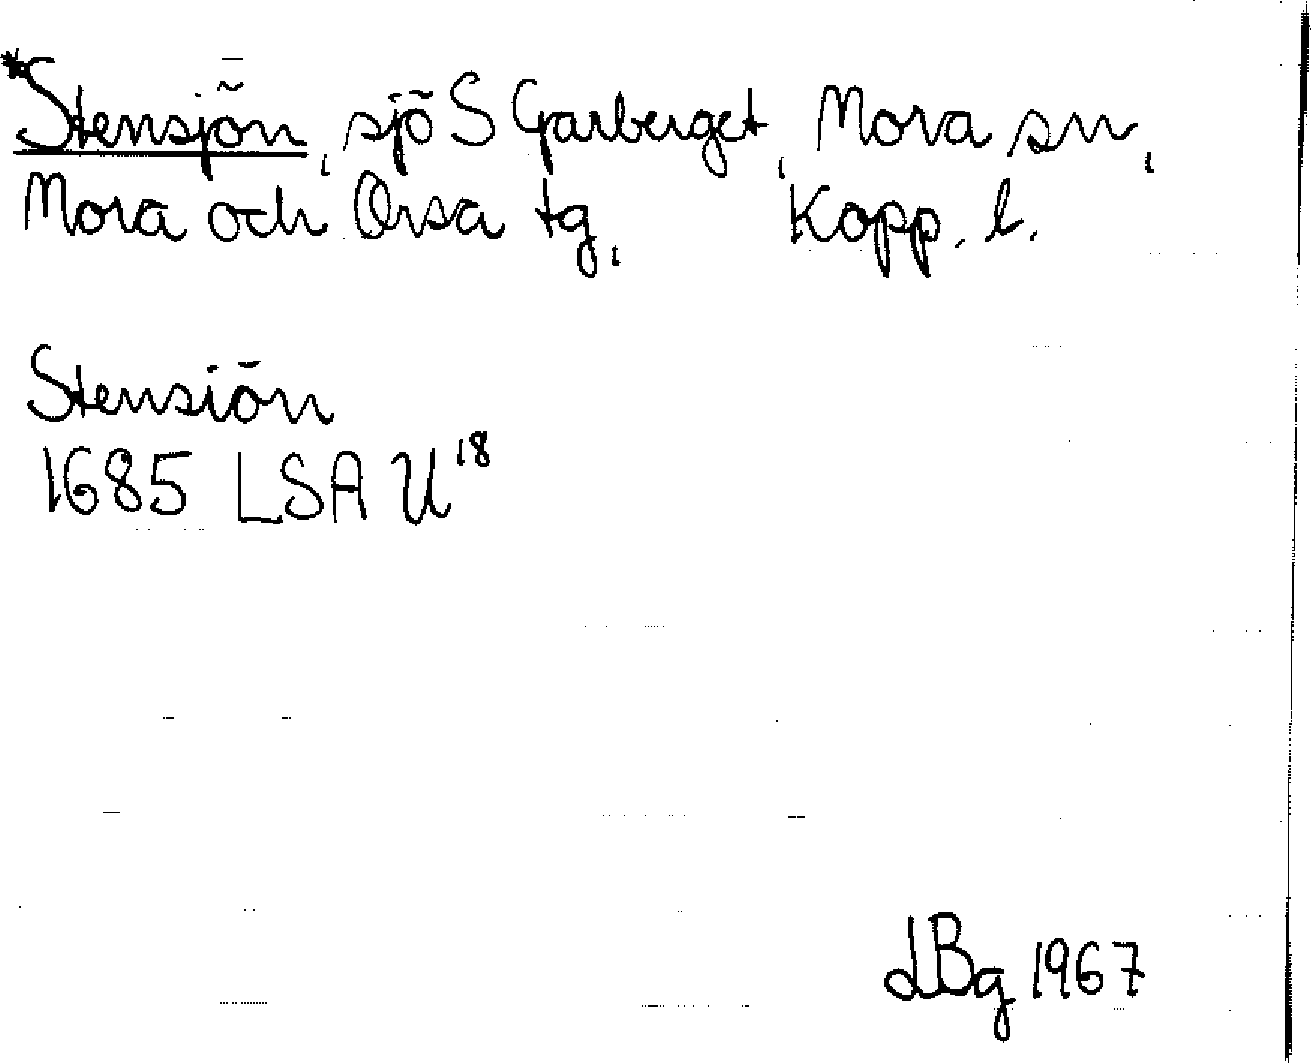 *Stensjön, sjö S Garberget, Mora sn,
Mora och Orsa tg, Kopp. l.
Stensiön
1685 LSA U18
LBg 1967